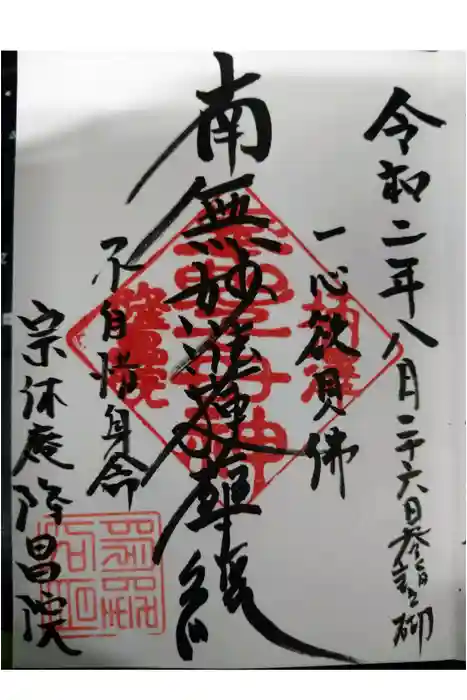 令和二年八月二十六日参詣之砌
一心欲見佛
南無妙法蓮華経
不自惜身命
宗休庵 隆昌院